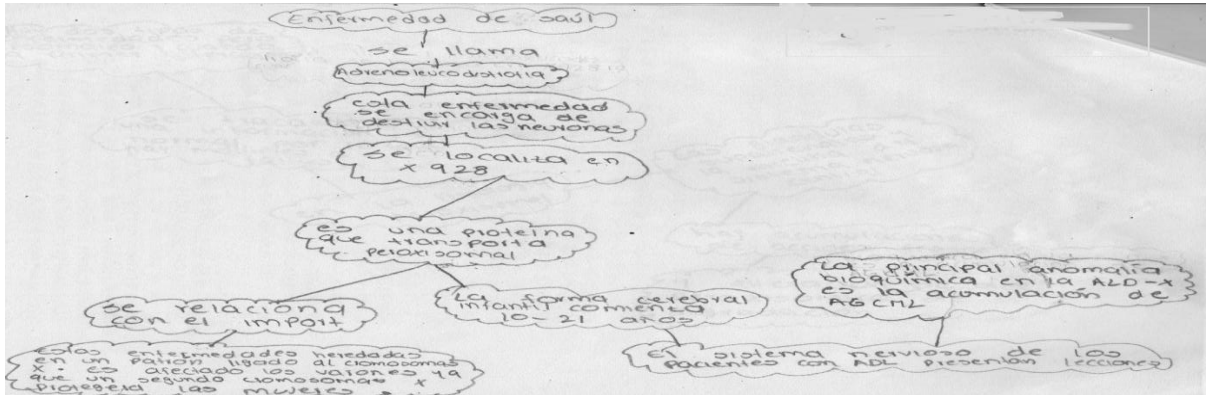 Enfermedad de saúl
se llama
Adrenoleucodistrofia
esta enfermedad
se encarga de
destruir las neuronas
se localiza en
x 928
es una proteina
que transporta
peroxisomal
se relaciona
con el import
La forma cerebral
infantil comienza
10-21 años
La principal anomalía
bioquímica en la ALD-X
es la acumulación de
AGCML
Estas enfermedades heredadas
en un patron ligado al cromosomas
x. es afectado los varones ya
que un segundo cromosomas x
protegera las mujeres
El sistema nervioso de los
pacientes con ADL presentan lecciones